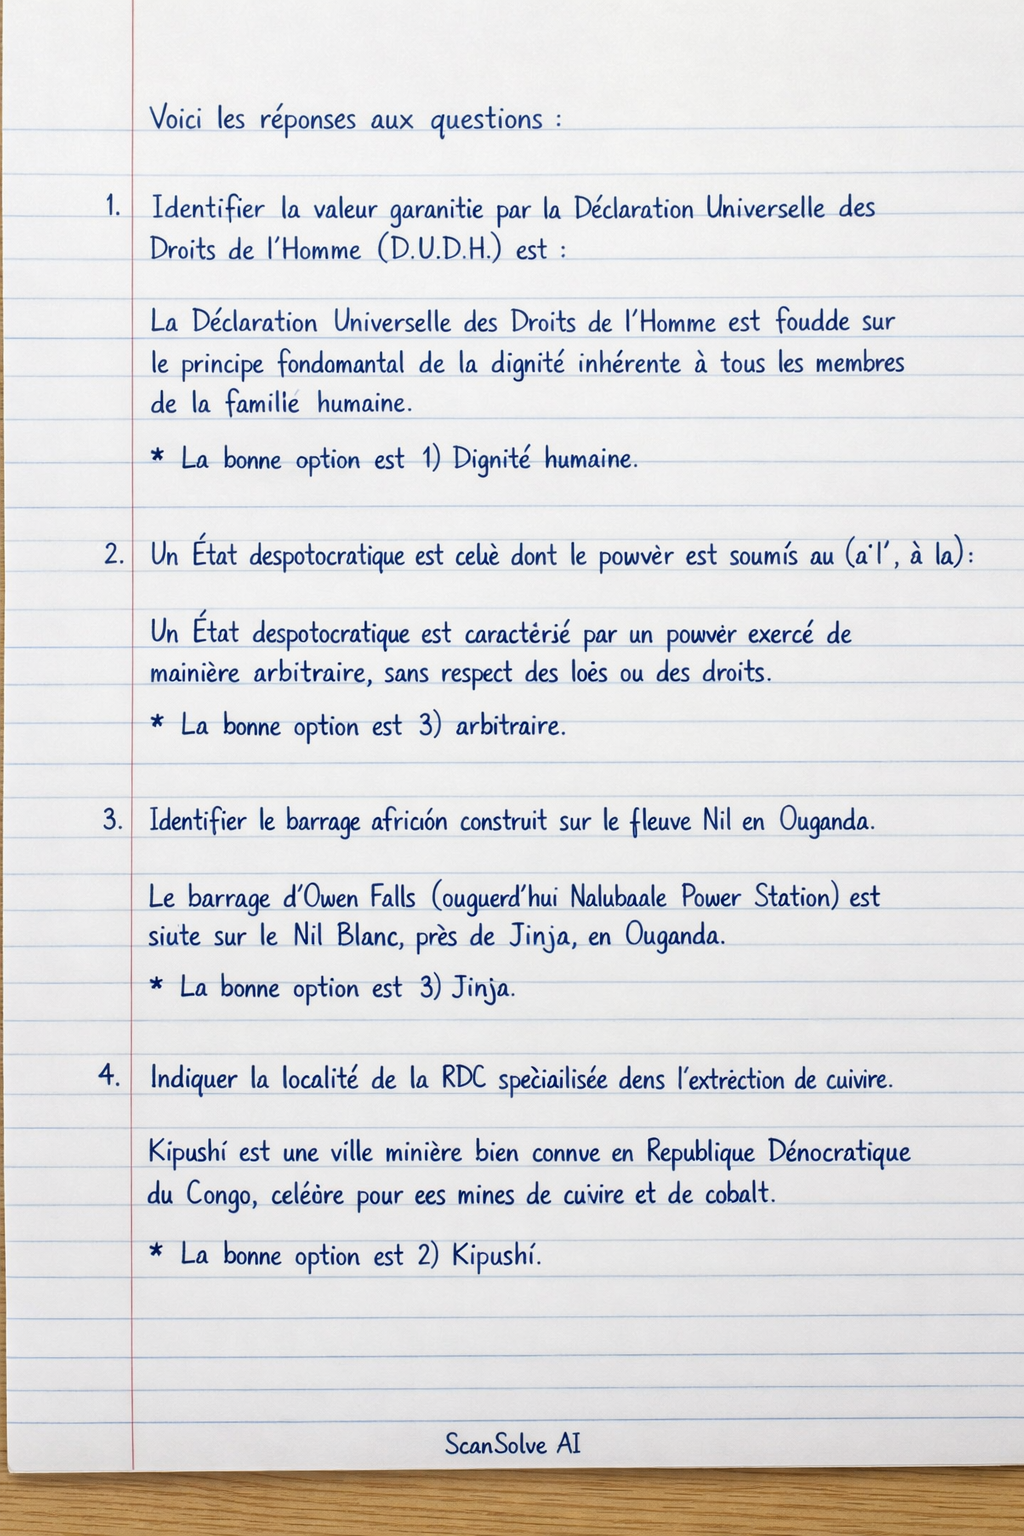 Voici les réponses aux questions :
1. Identifier la valeur garanitie par la Déclaration Universelle des
Droits de l'Homme (D.U.D.H.) est :
La Déclaration Universelle des Droits de l'Homme est foudde sur
le principe fondomantal de la dignité inhérente à tous les membres
de la familié humaine.
* La bonne option est 1) Dignité humaine.
2. Un État despotocratique est celuè dont le powvèr est soumís au (a'l', à la):
Un État despotocratique est caractérié par un powvér exercé de
mainière arbitraire, sans respect des loès ou des droits.
* La bonne option est 3) arbitraire.
3. Identifier le barrage africión construit sur le fleuve Nil en Ouganda.
Le barrage d'Owen Falls (ouguerd'hui Nalubaale Power Station) est
siute sur le Nil Blanc, près de Jinja, en Ouganda.
* La bonne option est 3) Jinja.
4. Indiquer la localité de la RDC speciailisée dens l'extrèction de cuivire.
Kipushí est une ville minière bien connve en Republique Dénocratique
du Congo, celéòre pour ees mines de cuivire et de cobalt.
* La bonne option est 2) Kipushí.
ScanSolve AI